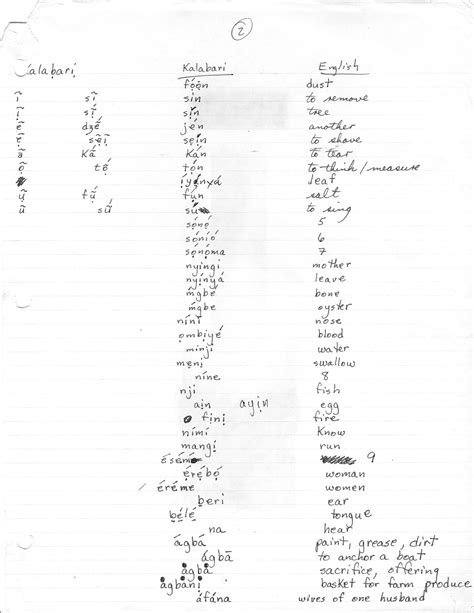 2
Kalabari Kalabari English
fọ́ọ́n dust
ĩ sĩ sịn to remove
ĩ sĩ sịn tree
ẽ dzẽ jén another
ẽ sẽĩ sẹin to shave
ã Kã́ Kán to tear
ọ̃ tọ̃́ tọ́n to think/measure
íyẹ́nyá leaf
ụ̃ fụ̃́ fụ́n salt
ũ sṹ sú to sing
sọ́nọ́ 5
sóníó 6
sọ́nọ́ma 7
nyingi mother
nyínyá leave
ḿgbé bone
ḿgbe oyster
níní nose
ọmbiyé blood
minji water
mẹnị swallow
níne 8
nji fish
aịn ayịn egg
fịnị fire
nímí Know
mangí run
ésémé 9
ẹ́rẹ́bọ́ woman
éréme women
bẹri ear
bẹ́lẹ́ tongue
na hear
ágbá paint, grease, dirt
ágbā to anchor a boat
agbā sacrifice, offering
agbanị basket for farm produce
áfána wives of one husband